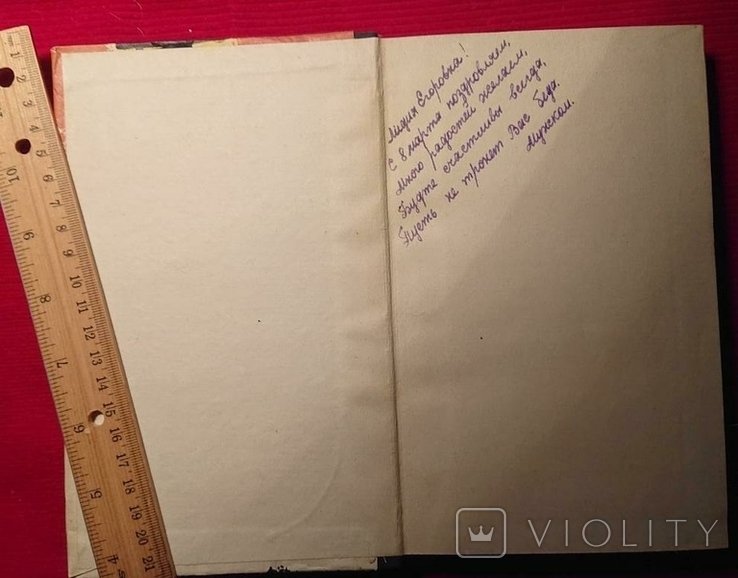 Лидия Егоровна!
С 8 марта поздровляем,
Много радостей желаем,
Будте счастливы всегда,
Пусть не тронет Вас беда.
VIOLITY
1 2 3 4 5 6 7 8 9 10 11 12 13 14 15 16 17 18 19 20 21
10 9 8 7 6 5 4